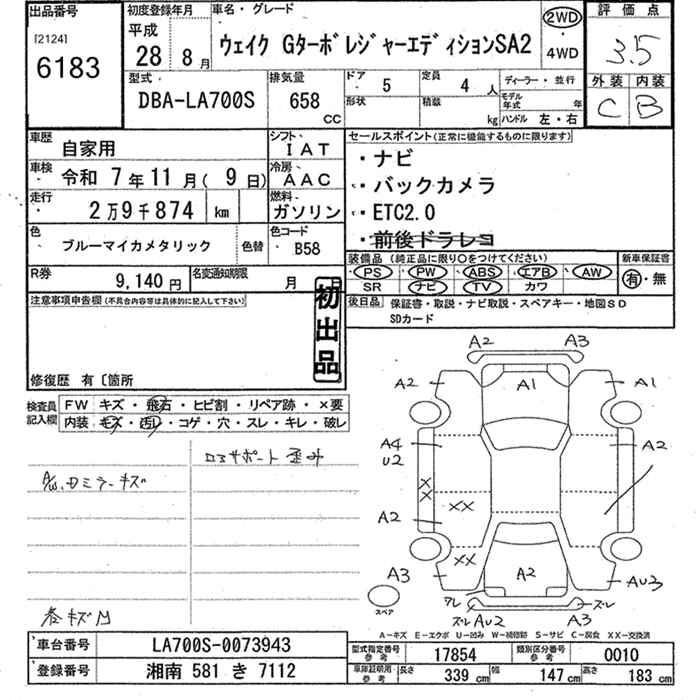 出品番号 初度登録年月 車名・グレード 評価点
[2124] 平成 2WD
6183 28年 8月 ウェイク GターボレジャーエディションSA2 ・ 4WD 3.5
型式 排気量 ドア 5 定員 4人 ディーラー・並行 外装 内装
DBA-LA700S 658 CC 形状 積載 kg モデル年式 年 C B
ハンドル 左・右
車歴 自家用 シフト IAT セールスポイント(正常に機能するものに限ります)
車検 令和 7年11月(9日) 冷房 AAC ・ナビ
・バックカメラ
走行 2万9千874 km 燃料 ガソリン ・ETC2.0
色 ブルーマイカメタリック 色替 色コード B58 ・前後ドラレコ
R券 9,140円 名変通知期限 月 装備品(純正品に限り○をつけてください) 新車保証書
PS・PW・ABS・エアB・AW 有・無
SR ナビ TV カワ
注意事項申告欄(不具合内容等は具体的に記入して下さい) 初出品 後日品 保証書・取説・ナビ取説・スペアキー・地図SD
SDカード
修復歴 有〔箇所
検査員記入欄 FW キズ・飛石・ヒビ割・リペア跡・×要
内装 キズ・汚レ・コゲ・穴・スレ・キレ・破レ
A2 A3
A2 A1 A1
A4 A2
U2
XX
A2 XX
XX
A3 A2 AU3
スペア
ズレ AU2 A3 ズレ
コアサポート歪み
A/W、Dミラーキズ
A-キズ E-エクボ U-凹み W-補修跡 S-サビ C-腐食 XX-交換済
車台番号 LA700S-0073943 型式指定番号 参考 17854 類別区分番号 参考 0010
登録番号 湘南 581 き 7112 車庫証明用・参考 長さ 339 cm 幅 147 cm 高さ 183 cm